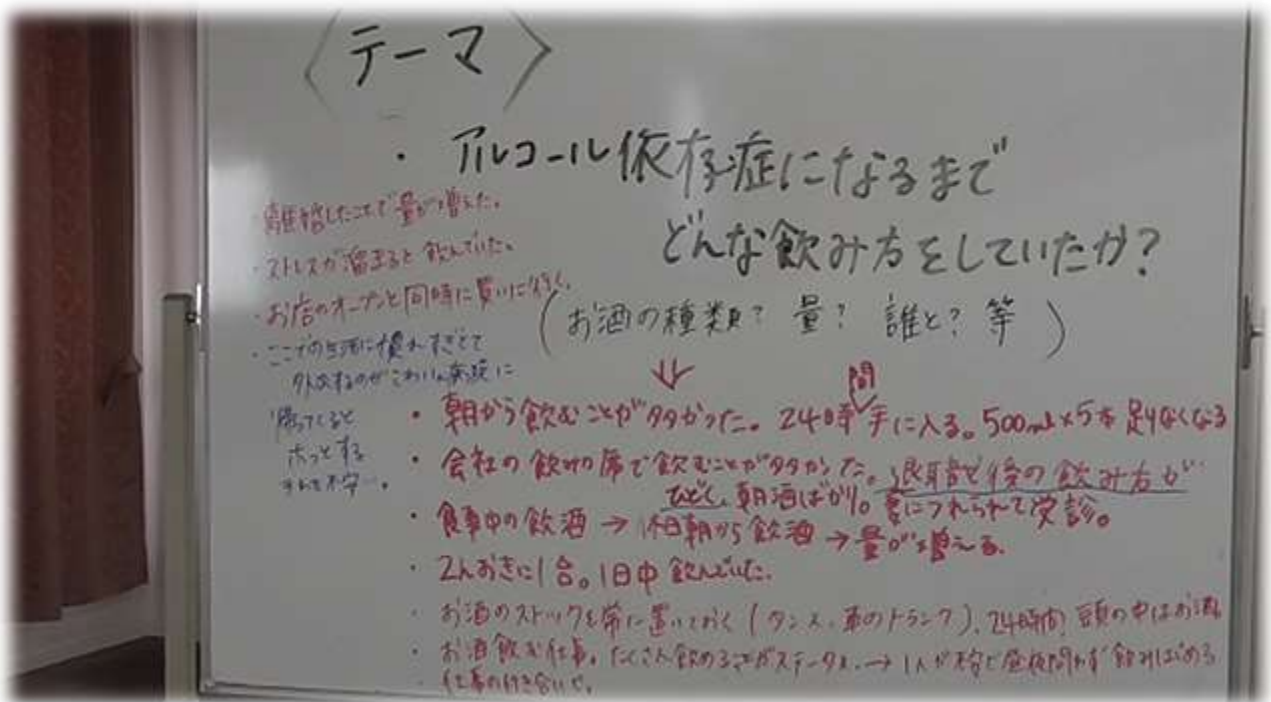 〈テーマ〉
・アルコール依存症になるまで
どんな飲み方をしていたか?
(お酒の種類? 量? 誰と? 等)
・離婚したことで量が増えた。
・ストレスが溜まると飲んでいた。
・お店のオープンと同時に買いに行く。
・ここでの生活に慣れすぎてて
外出するのがこわい。病院に
帰ってくると
ホッとする
それも不安…。
・朝から飲むことが多かった。24時間手に入る。500ml×5本 足りなくなる
・会社の飲みの席で飲むことが多かった。退職後の飲み方が
ひどく、朝酒ばかり。妻につれられて受診。
・食事中の飲酒→休日朝から飲酒→量が増える。
・2hおきに1合。1日中飲んでいた。
・お酒のストックを常に置いておく(タンス、車のトランク)、24時間頭の中はお酒
・お酒飲む仕事。たくさん飲めることがステータス。→1人が不安で昼夜問わず飲みはじめる
・仕事の付き合いで。